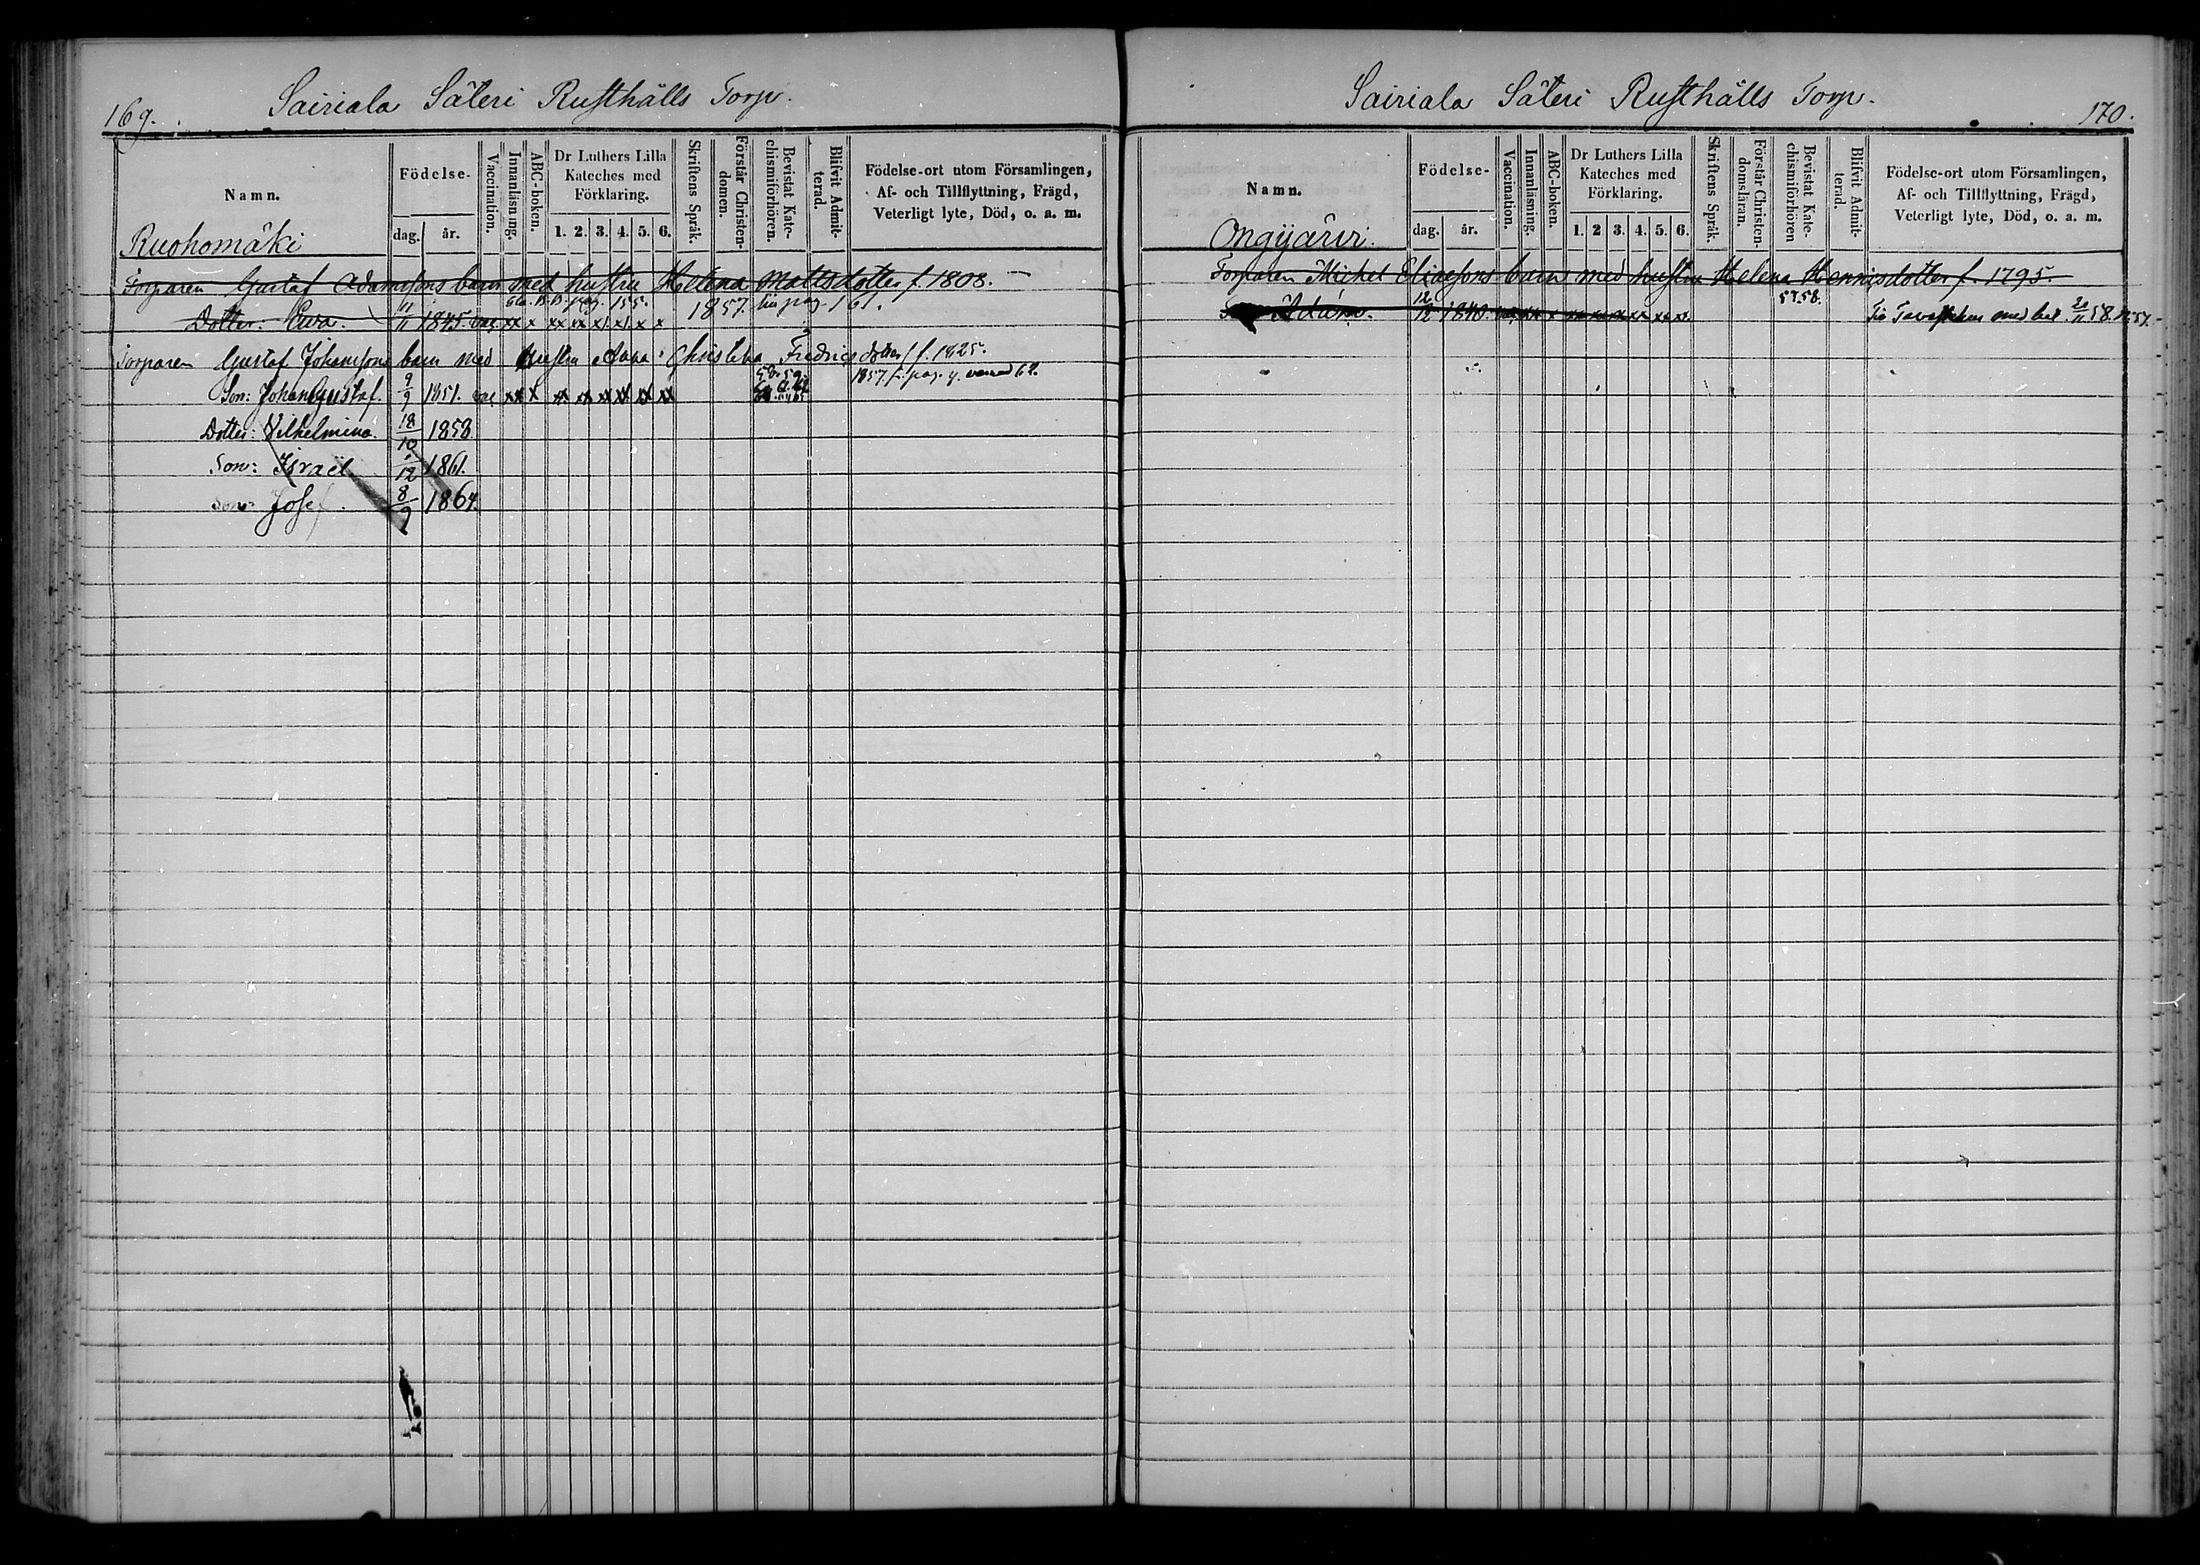 169.
Sairiala Säteri Rusthålls Torp.
Namn.
Födelse-
dag.
år.
Vaccination.
Innanläsning.
ABC-boken.
Dr Luthers Lilla
Kateches med
Förklaring.
1. 2. 3. 4. 5. 6.
Skriftens Språk.
Förstår Christen-
domen.
Bevistat Kate-
chismiförhören.
Blifvit Admit-
terad.
Födelse-ort utom Församlingen,
Af- och Tillflyttning, Frägd,
Veterligt lyte, Död, o. a. m.
Ruohomäki
Torparen Gustaf Adamssons barn med hustru Helena Mattsdotter f. 1808.
B.B. pag. 155. 1857. pag 161.
Dotter: Eva. 11/11 1845. vac xx x xx x x x x x
Torparen Gustaf Johanssons barn med hustru Anna Christina Fredricsdotter f. 1825.
58. 59. 1857. fr. pag. 62.
Son: Johan Gustaf. 9/9 1851. vac xx x xx xx xx xx xx xx
Dotter: Vilhelmina. 18/10 1858
Son: Israël 1/12 1861.
Son: Josef. 8/9 1864.
Sairiala Säteri Rusthålls Torp.
170.
Namn.
Födelse-
dag.
år.
Vaccination.
Innanläsning.
ABC-boken.
Dr Luthers Lilla
Kateches med
Förklaring.
1. 2 3. 4. 5. 6.
Skriftens Språk.
Förstår Christen-
domsläran.
Bevistat Kate-
chismiförhören
Blifvit Admit-
terad.
Födelse-ort utom Församlingen,
Af- och Tillflyttning, Frägd,
Veterligt lyte, Död, o. a. m.
Ongijärvi.
Torparen Michel Eliaesons barn med hustru Helena Henricsdotter f. 1795.
57.58.
Adam. 12/12 1840. vac xx x xx xx xx xx xx xx med bet. 20/11 58.